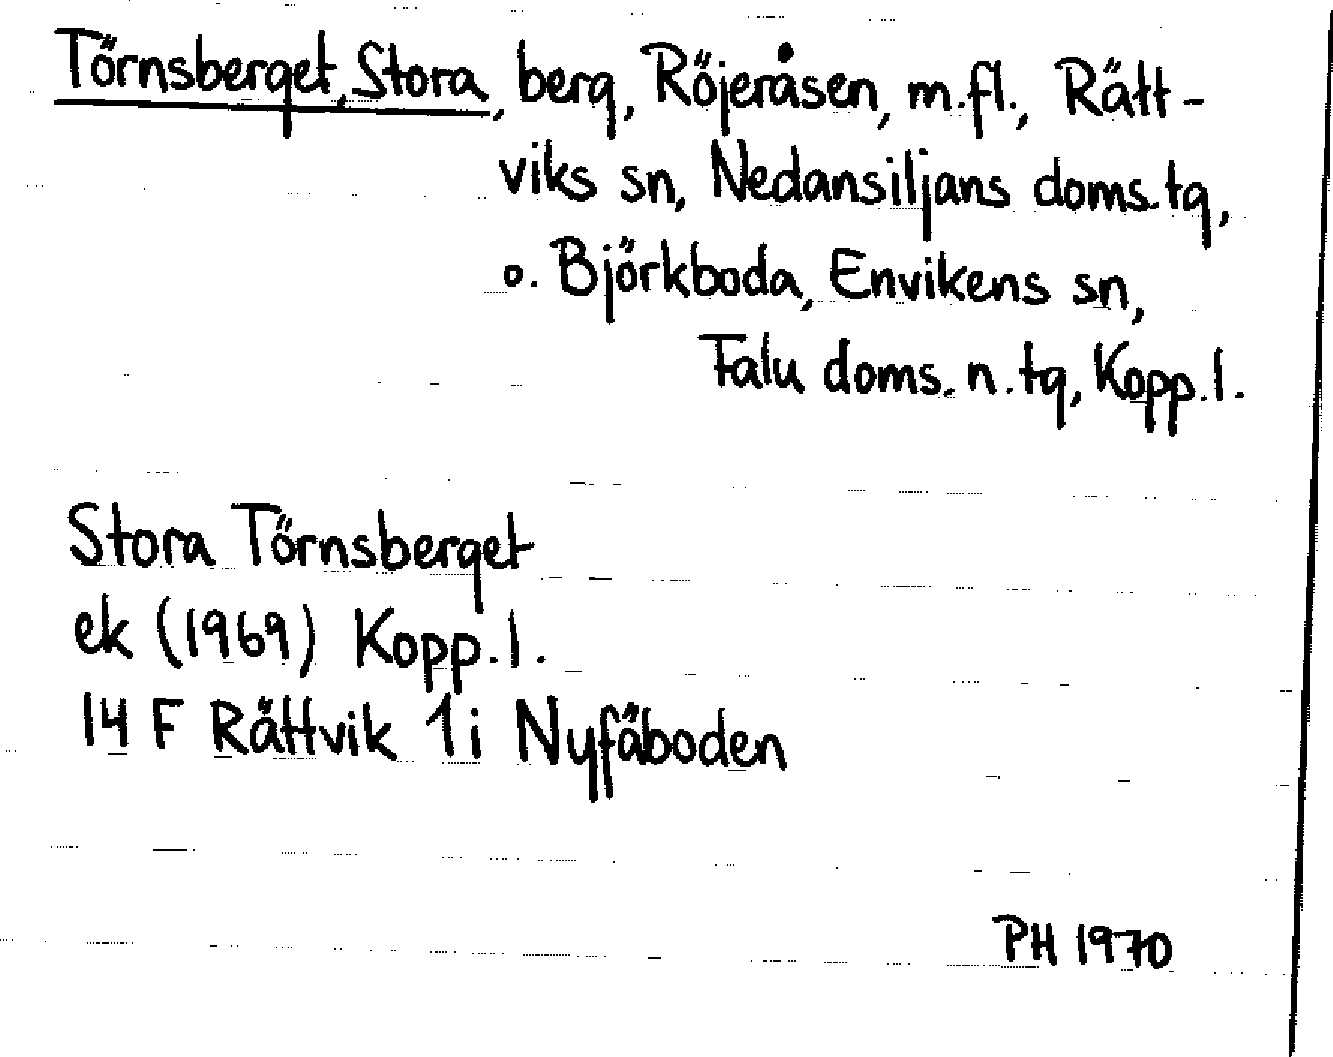 Törnsberget, Stora, berg, Röjeråsen, m.fl., Rätt-
viks sn, Nedansiljans doms.tg,
o. Björkboda, Envikens sn,
Falu doms. n. tg, Kopp.l.
Stora Törnsberget
ek (1969) Kopp.l.
14 F Rättvik 1 i Nyfäboden
PH 1970